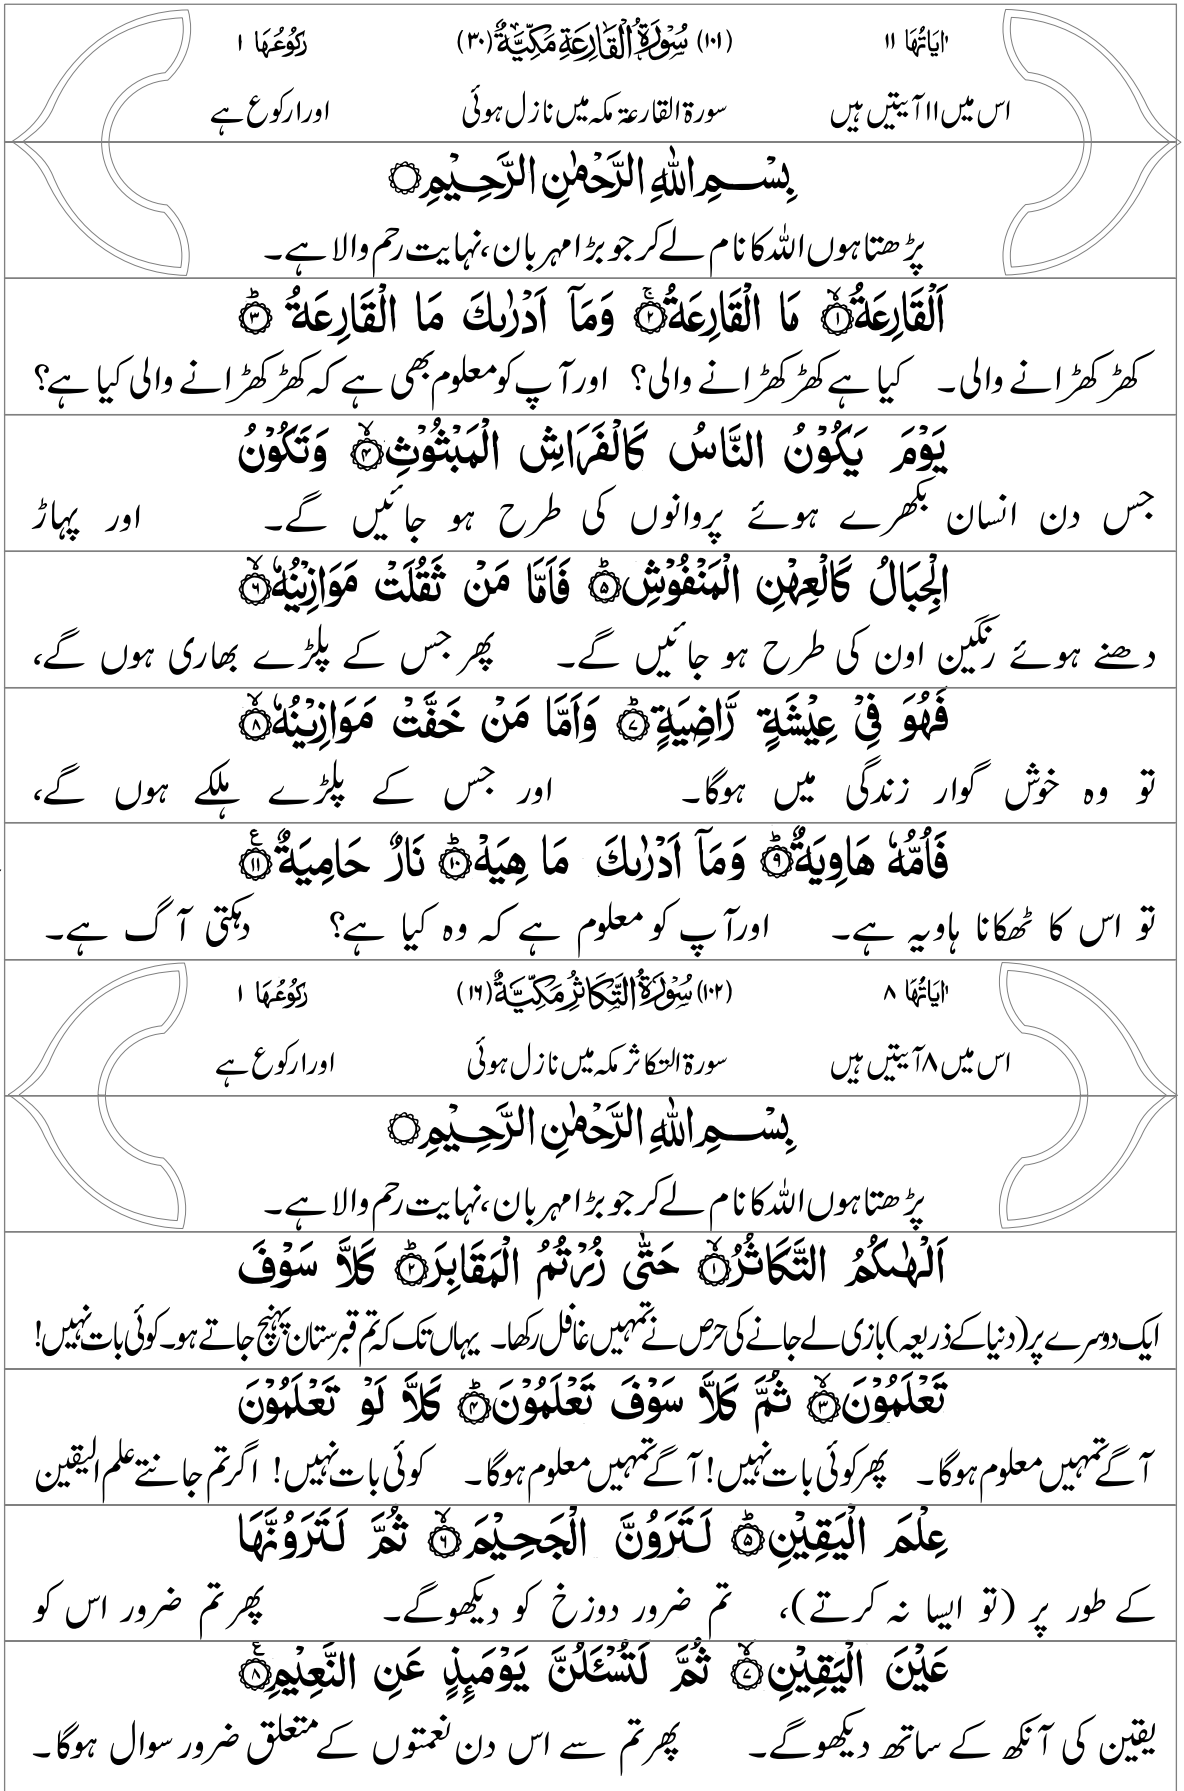 اٰيَاتُهَا ۱۱ (۱۰۱) سُوْرَةُ الْقَارِعَةِ مَكِّيَّةٌ (۳۰) رُكُوْعُهَا ۱
اس میں ۱۱ آیتیں ہیں سورۃ القارعۃ مکہ میں نازل ہوئی اور ۱ رکوع ہے
بِسْمِ اللّٰهِ الرَّحْمٰنِ الرَّحِيْمِ
پڑھتا ہوں اللہ کا نام لے کر جو بڑا مہربان، نہایت رحم والا ہے۔
اَلْقَارِعَةُ ۱ مَا الْقَارِعَةُ ۲ وَمَآ اَدْرٰىكَ مَا الْقَارِعَةُ ۳
کھڑ کھڑانے والی۔ کیا ہے کھڑ کھڑانے والی؟ اور آپ کو معلوم بھی ہے کہ کھڑ کھڑانے والی کیا ہے؟
يَوْمَ يَكُوْنُ النَّاسُ كَالْفَرَاشِ الْمَبْثُوْثِ ۴ وَتَكُوْنُ
جس دن انسان بکھرے ہوئے پروانوں کی طرح ہو جائیں گے۔ اور پہاڑ
الْجِبَالُ كَالْعِهْنِ الْمَنْفُوْشِ ۵ فَاَمَّا مَنْ ثَقُلَتْ مَوَازِيْنُهٗ ۶
دھنے ہوئے رنگین اون کی طرح ہو جائیں گے۔ پھر جس کے پلڑے بھاری ہوں گے،
فَهُوَ فِيْ عِيْشَةٍ رَّاضِيَةٍ ۷ وَاَمَّا مَنْ خَفَّتْ مَوَازِيْنُهٗ ۸
تو وہ خوش گوار زندگی میں ہوگا۔ اور جس کے پلڑے ہلکے ہوں گے،
فَاُمُّهٗ هَاوِيَةٌ ۹ وَمَآ اَدْرٰىكَ مَا هِيَهْ ۱۰ نَارٌ حَامِيَةٌ ۱۱
تو اس کا ٹھکانا ہاویہ ہے۔ اور آپ کو معلوم ہے کہ وہ کیا ہے؟ دہکتی آگ ہے۔
اٰيَاتُهَا ۸ (۱۰۲) سُوْرَةُ التَّكَاثُرِ مَكِّيَّةٌ (۱۶) رُكُوْعُهَا ۱
اس میں ۸ آیتیں ہیں سورۃ التکاثر مکہ میں نازل ہوئی اور ۱ رکوع ہے
بِسْمِ اللّٰهِ الرَّحْمٰنِ الرَّحِيْمِ
پڑھتا ہوں اللہ کا نام لے کر جو بڑا مہربان، نہایت رحم والا ہے۔
اَلْهٰىكُمُ التَّكَاثُرُ ۱ حَتّٰى زُرْتُمُ الْمَقَابِرَ ۲ كَلَّا سَوْفَ
ایک دوسرے پر (دنیا کے ذریعہ) بازی لے جانے کی حرص نے تمہیں غافل رکھا۔ یہاں تک کہ تم قبرستان پہنچ جاتے ہو۔ کوئی بات نہیں!
تَعْلَمُوْنَ ۳ ثُمَّ كَلَّا سَوْفَ تَعْلَمُوْنَ ۴ كَلَّا لَوْ تَعْلَمُوْنَ
آگے تمہیں معلوم ہوگا۔ پھر کوئی بات نہیں! آگے تمہیں معلوم ہوگا۔ کوئی بات نہیں! اگر تم جانتے علم الیقین
عِلْمَ الْيَقِيْنِ ۵ لَتَرَوُنَّ الْجَحِيْمَ ۶ ثُمَّ لَتَرَوُنَّهَا
کے طور پر (تو ایسا نہ کرتے)، تم ضرور دوزخ کو دیکھوگے۔ پھر تم ضرور اس کو
عَيْنَ الْيَقِيْنِ ۷ ثُمَّ لَتُسْـَٔلُنَّ يَوْمَىِٕذٍ عَنِ النَّعِيْمِ ۸
یقین کی آنکھ کے ساتھ دیکھوگے۔ پھر تم سے اس دن نعمتوں کے متعلق ضرور سوال ہوگا۔